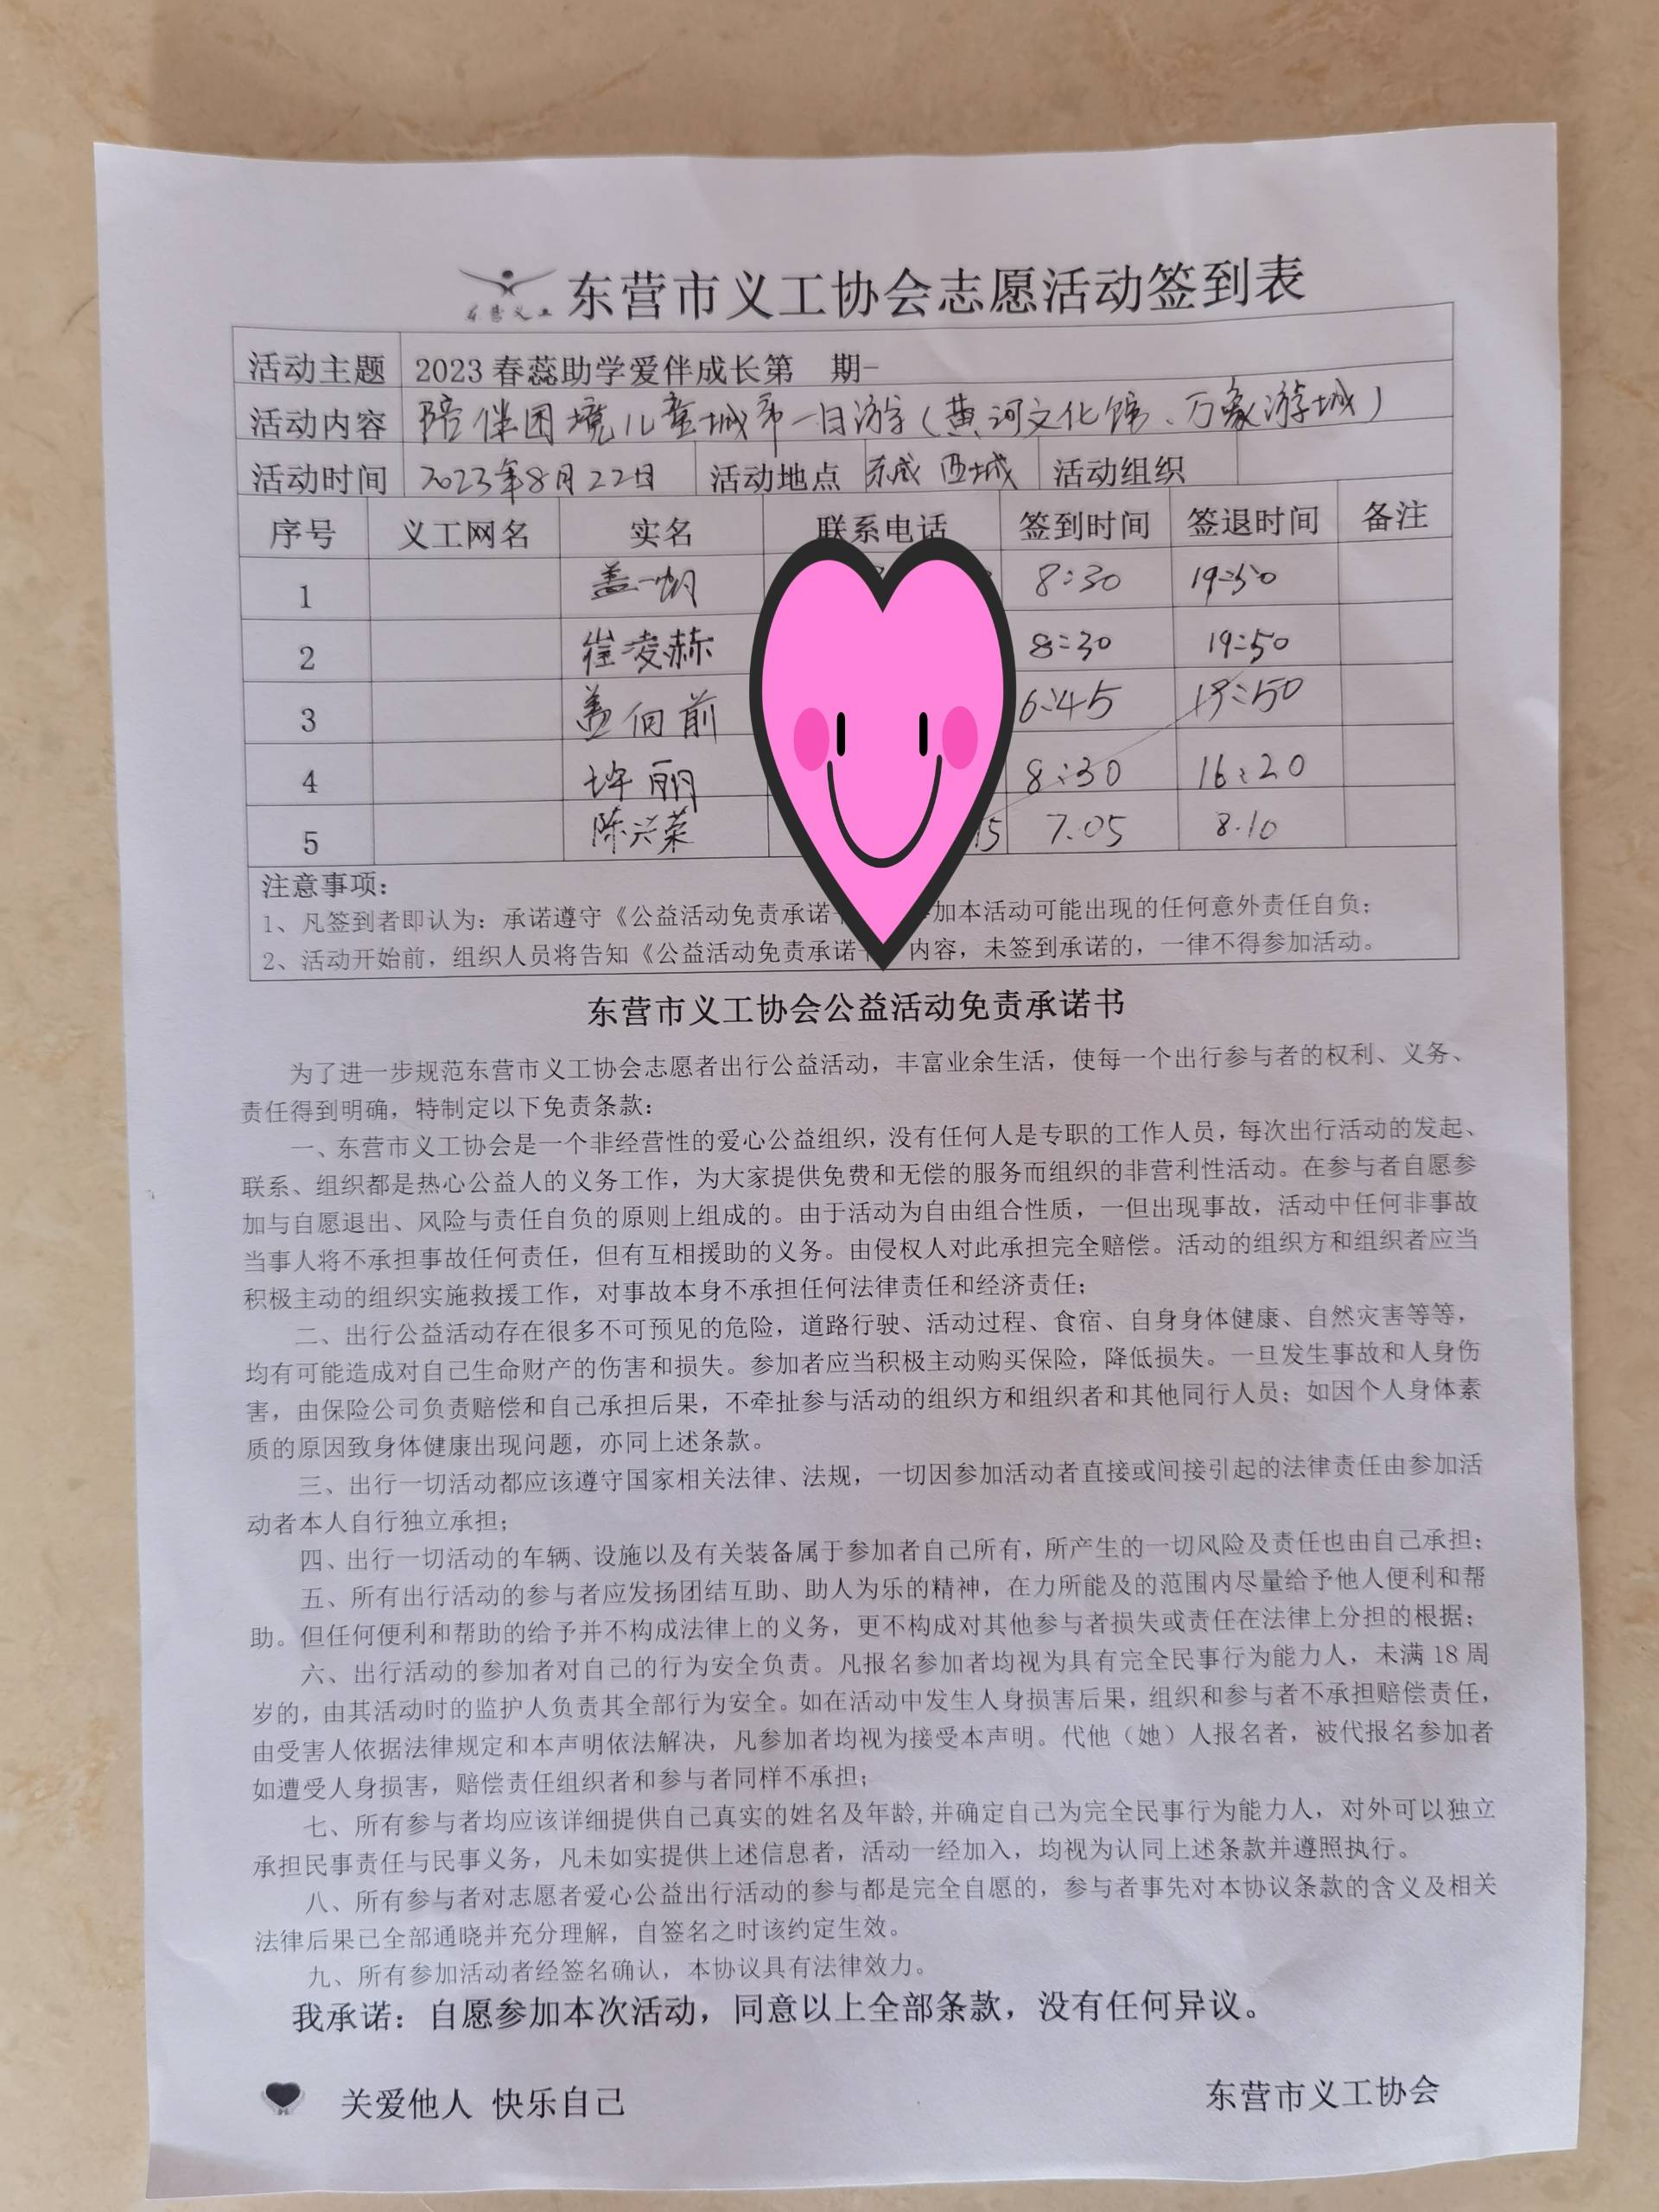 东营义工 东营市义工协会志愿活动签到表
活动主题 2023春蕊助学爱伴成长第 期-
活动内容 陪伴困境儿童城市一日游学(黄河文化馆、万象游城)
活动时间 2023年8月22日 活动地点 东城 西城 活动组织
序号 义工网名 实名 联系电话 签到时间 签退时间 备注
1 盖一帆 8:30 19:50
2 崔凌赫 8:30 19:50
3 盖佰前 6:45 19:50
4 许丽 8:30 16:20
5 陈兴荣 15 7.05 8.10
注意事项:
1、凡签到者即认为:承诺遵守《公益活动免责承诺 加本活动可能出现的任何意外责任自负;
2、活动开始前,组织人员将告知《公益活动免责承诺书 内容,未签到承诺的,一律不得参加活动。
东营市义工协会公益活动免责承诺书
为了进一步规范东营市义工协会志愿者出行公益活动,丰富业余生活,使每一个出行参与者的权利、义务、
责任得到明确,特制定以下免责条款:
一、东营市义工协会是一个非经营性的爱心公益组织,没有任何人是专职的工作人员,每次出行活动的发起、
联系、组织都是热心公益人的义务工作,为大家提供免费和无偿的服务而组织的非营利性活动。在参与者自愿参
加与自愿退出、风险与责任自负的原则上组成的。由于活动为自由组合性质,一但出现事故,活动中任何非事故
当事人将不承担事故任何责任,但有互相援助的义务。由侵权人对此承担完全赔偿。活动的组织方和组织者应当
积极主动的组织实施救援工作,对事故本身不承担任何法律责任和经济责任;
二、出行公益活动存在很多不可预见的危险,道路行驶、活动过程、食宿、自身身体健康、自然灾害等等,
均有可能造成对自己生命财产的伤害和损失。参加者应当积极主动购买保险,降低损失。一旦发生事故和人身伤
害,由保险公司负责赔偿和自己承担后果,不牵扯参与活动的组织方和组织者和其他同行人员;如因个人身体素
质的原因致身体健康出现问题,亦同上述条款。
三、出行一切活动都应该遵守国家相关法律、法规,一切因参加活动者直接或间接引起的法律责任由参加活
动者本人自行独立承担;
四、出行一切活动的车辆、设施以及有关装备属于参加者自己所有,所产生的一切风险及责任也由自己承担;
五、所有出行活动的参与者应发扬团结互助、助人为乐的精神,在力所能及的范围内尽量给予他人便利和帮
助。但任何便利和帮助的给予并不构成法律上的义务,更不构成对其他参与者损失或责任在法律上分担的根据;
六、出行活动的参加者对自己的行为安全负责。凡报名参加者均视为具有完全民事行为能力人,未满18周
岁的,由其活动时的监护人负责其全部行为安全。如在活动中发生人身损害后果,组织和参与者不承担赔偿责任,
由受害人依据法律规定和本声明依法解决,凡参加者均视为接受本声明。代他(她)人报名者,被代报名参加者
如遭受人身损害,赔偿责任组织者和参与者同样不承担;
七、所有参与者均应该详细提供自己真实的姓名及年龄,并确定自己为完全民事行为能力人,对外可以独立
承担民事责任与民事义务,凡未如实提供上述信息者,活动一经加入,均视为认同上述条款并遵照执行。
八、所有参与者对志愿者爱心公益出行活动的参与都是完全自愿的,参与者事先对本协议条款的含义及相关
法律后果已全部通晓并充分理解,自签名之时该约定生效。
九、所有参加活动者经签名确认,本协议具有法律效力。
我承诺:自愿参加本次活动,同意以上全部条款,没有任何异议。
关爱他人 快乐自己 东营市义工协会